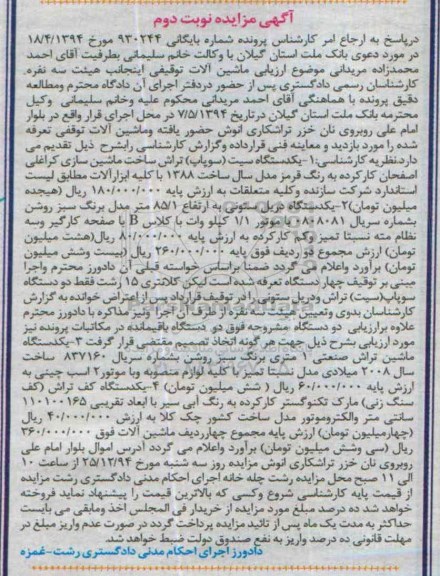 آگهی مزایده نوبت دوم
درپاسخ به ارجاع امر کارشناس پرونده شماره بایگانی ۹۳۰۲۴۴ مورخ ۱۸/۴/۱۳۹۴
در مورد دعوی بانک ملت استان گیلان با وکالت خانم سلیمانی بطرفیت آقای احمد
محمدزاده مریدانی موضوع ارزیابی ماشین آلات توقیفی اینجانب هیئت سه نفره
کارشناسان رسمی دادگستری پس از حضور دردفتر اجرای آن دادگاه محترم ومطالعه
دقیق پرونده با هماهنگی آقای احمد مریدانی محکوم علیه وخانم سلیمانی وکیل
محترمه بانک ملت استان گیلان درتاریخ ۷/۵/۱۳۹۴ در محل اجرای قرار واقع در بلوار
امام علی روبروی نان خزر تراشکاری انوش حضور یافته وماشین آلات توقفی تعرفه
شده را مورد بازدید و معاینه فنی قرارداده وگزارش کارشناسی رابشرح ذیل تقدیم می
دارد.نظریه کارشناسی:۱-یکدستگاه سیت (سوپاپ) تراش ساخت ماشین سازی کراغلی
اصفحان کارکرده به رنگ قرمز مدل سال ساخت ۱۳۸۸ با کلیه ابزارآلات مطابق لیست
استاندارد شرکت سازنده وکلیه متعلقات به ارزش پایه ۱۸۰/۰۰۰/۰۰۰ ریال (هیجده
میلیون تومان)۲-یکدستگاه دریل ستونی به ارتفاع ۸۵/۱ متر مدل برنگ سبز روشن
بشماره سریال ۰۸۰۸۰۸۱ با موتور ۱/۱ کیلو وات با کلاس B با صفحه کارگیر وسه
نظام مته نسبتا تمیز وکم کارکرده به ارزش پایه ۸۰/۰۰۰/۰۰۰ ریال(هشت میلیون
تومان) ارزش مجموع دو ردیف فوق پایه ۲۶۰/۰۰۰/۰۰۰ ریال (بیست وشش میلیون
تومان) برآورد واعلام می گردد ضمنا براساس خواسته قبلی آن دادورز محترم واجرا
مبنی بر توقیف چهار دستگاه تعرفه شده است لیکن کلانتری ۱۵ رشت فقط دو دستگاه
سوپاپ(سیت) تراش ودریل ستونی را در توقیف قرارداد پس از اعتراض خوانده به گزارش
کارشناسان بدوی وتعیین هیئت سه نفره از طرف آن اجرا وغیر مذاکره با دادورز محترم
علاوه برارزیابی دو دستگاه مشروحه فوق دو دستگاه باقیمانده در مکاتبات پرونده نیز
مورد ارزیابی بشرح ذیل جهت هر گونه اتخاذ تصمیم مقتضی قرار گرفت ۳-یکدستگاه
ماشین تراش صنعتی ۱ متری برنگ سبز روشن بشماره سریال ۸۳۷۱۶۰ ساخت
سال ۲۰۰۸ میلادی مدل نسبتا تمیز با کلیه لوازم منصوبه وبا موتور۲ اسب چینی به
ارزش پایه ۶۰/۰۰۰/۰۰۰ ریال ( شش میلیون تومان) ۴-یکدستگاه کف تراش (کف
سنگ زنی) مارک تکنوگستر کارکرده به رنگ آبی سیر با ابعاد تقریبی ۱۶۵*۱۰۰*۱۱۰
سانتی متر والکتروموتور مدل ساخت کشور چک کلا به ارزش ۴۰/۰۰۰/۰۰۰ ریال
(چهارمیلیون تومان) ارزش پایه مجموع چهارردیف ماشین آلات فوق ۳۶۰/۰۰۰/۰۰۰
ریال (سی وشش میلیون تومان) برآورد واعلام می گردد آدرس اموال بلوار امام علی
روبروی نان خزر تراشکاری انوش مزایده روز سه شنبه مورخ ۲۵/۱۲/۹۴ از ساعت ۱۰
الی ۱۱ صبح محل مزایده رشت چله خانه اجرای احکام مدنی دادگستری رشت مزایده
از قیمت پایه کارشناسی شروع وکسی که بالاترین قیمت را پیشنهاد نماید فروخته
خواهد شد ده درصد مبلغ مورد مزایده از خریدار فی المجلس اخذ ومابقی می بایست
حداکثر به مدت یک ماه پس از تائید مزایده پرداخت گردد در صورت عدم واریز مبلغ در
مهلت قانونی ده درصد واریز به نفع صندوق دولت ضبط خواهد شد.
دادورز اجرای احکام مدنی دادگستری رشت-غمزه